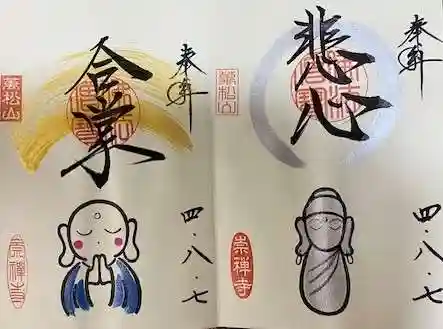 奉拝
悲心
萬松山
四・八・七
崇禅寺
奉拝
合掌
萬松山
四・八・七
崇禅寺